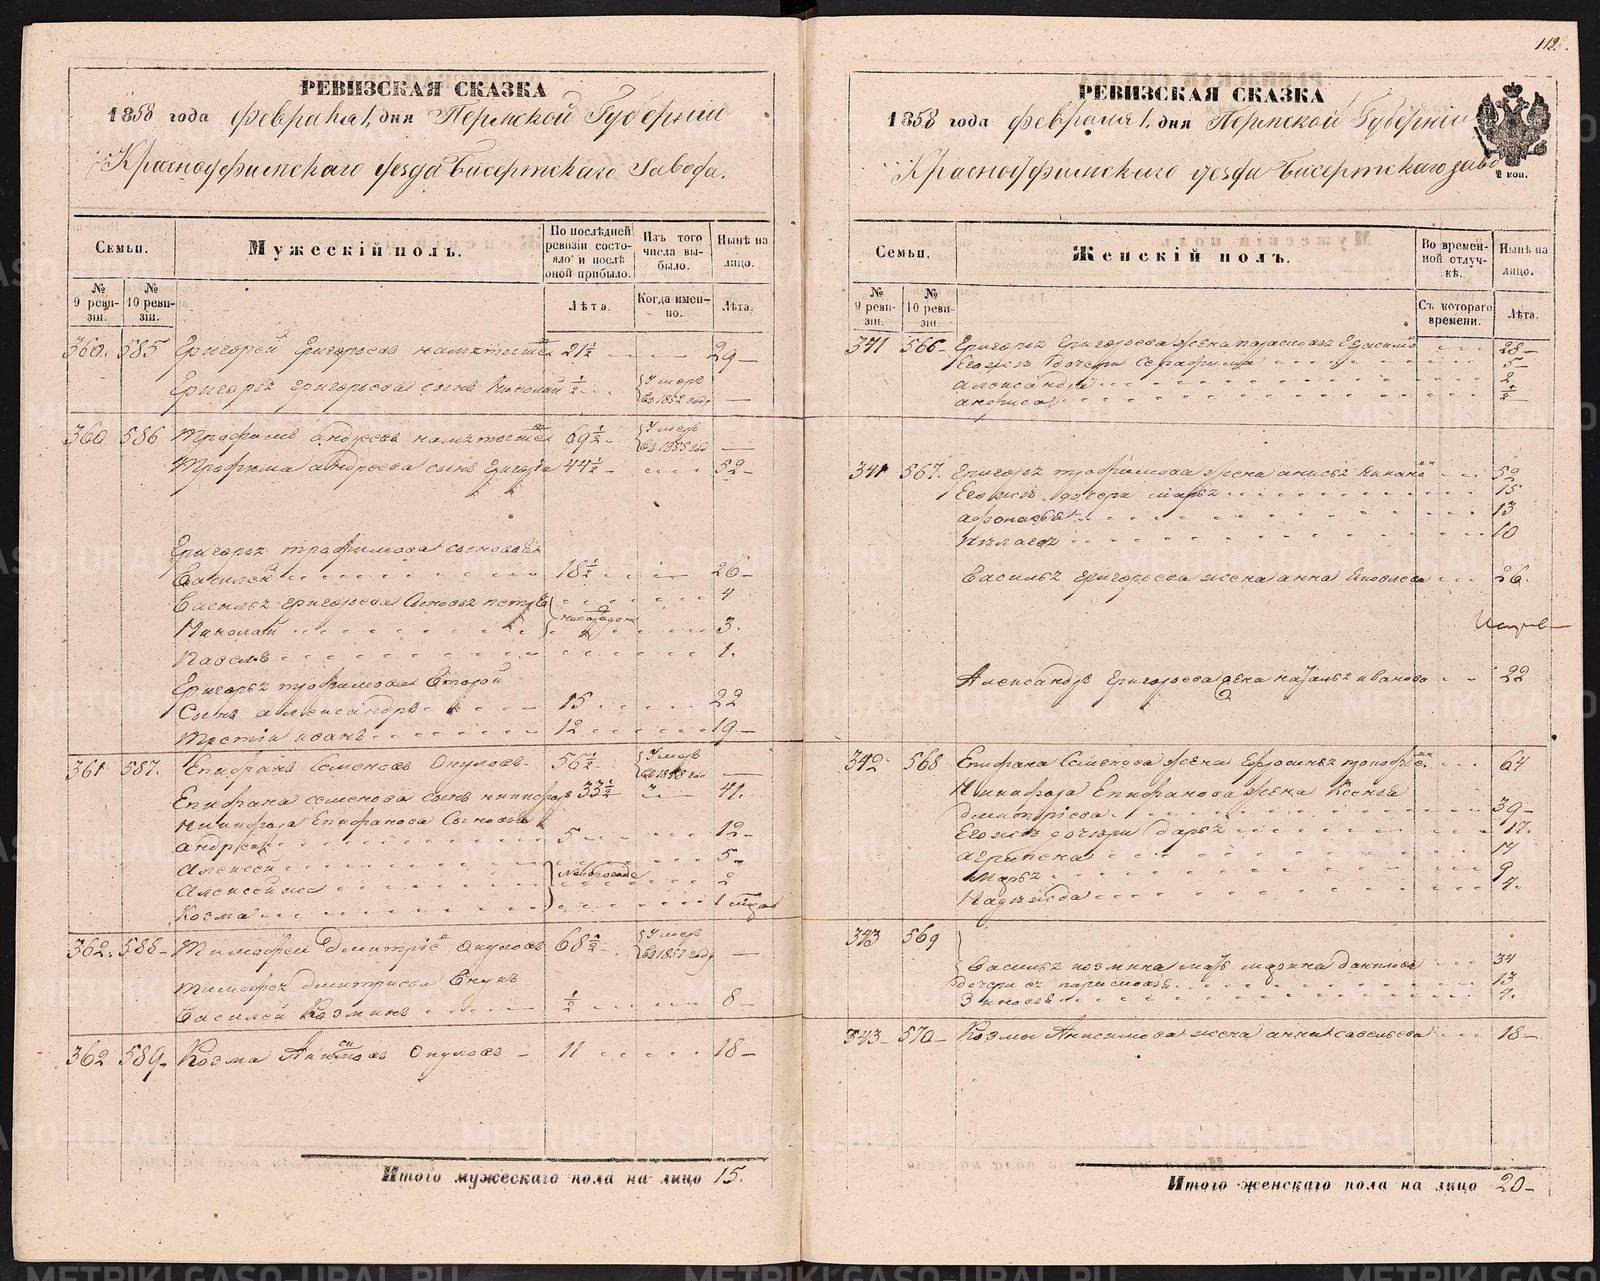 РЕВИЗСКАЯ СКАЗКА
1858 года февраля 1, дня Пермской Губернии
Красноуфимскаго уезда Бисертскаго Завода.
Семьи.
Мужескій полъ.
По послѣдней ревизіи состояло и послѣ оной прибыло.
Изъ того числа выбыло.
Нынѣ на лицо.
№ 9 ревизіи.
№ 10 ревизіи.
Лѣта.
Когда именно.
Лѣта.
360. 585 Григорей Григорьевъ 21½ 29
Григорья Григорьева сынъ Николай ½ Умеръ въ 1852 году
360 586 Трофимъ Андреевъ 69½ Умеръ въ 1855 году
Трофима Андреева сынъ Григорей 44½ 52
Григорья Трофимова сыновья
Василей 18½ 26
Василья Григорьева сыновья Петръ 4
Николай новорожден 3.
Павелъ 1.
Григорья Трофимова Второй
Сынъ Александръ 15 22
Третій Иванъ 12 19
361 587. Епифанъ Семеновъ Окуловъ 56½ Умеръ
Епифана Семенова сынъ Никифоръ 33½ 41.
Никифора Епифанова Сыновья
Андрей 5 12
Алексей 5
Алексей же новорожден 2
Козма 1
362. 588 Тимофей Дмитріевъ Окуловъ 68½ Умеръ въ 1851 году
Тимофея Дмитріева Внукъ
Василей Козминъ ½ 8
362 589 Козма Анисимовъ Окуловъ 11 18
Итого мужескаго пола на лицо 15.
112.
РЕВИЗСКАЯ СКАЗКА
1858 года февраля 1, дня Пермской Губерніи
Красноуфимскаго уезда Бисертскаго заво
2 коп.
Семьи.
Женскій полъ.
Во временной отлучкѣ.
Нынѣ на лицо.
№ 9 ревизіи.
№ 10 ревизіи.
Съ котораго времени.
Лѣта.
341 566 Григорья Григорьева жена 28
Его же дочери Серафима 5
Александра 2
Анфиса ½
341 567. Григорья Трофимова жена Анисья 52
Его же дочери Марья 15
Афонасья 13
Пелагея 10
Василья Григорьева жена Анна Яковлева 26.
Александра Григорьева жена Наталья Иванова 22
342 568 Епифана Семенова жена Ефросинья 64
Никифора Епифанова жена Ксенья
Дмитріева 39
Его же дочери Дарья 17.
Агрипена 14
Марья 9
Надежда 4.
343 569
Василья Козмина мать Марина Данилова 34
Дочери ея 13
Зиновья 4.
343 570 Козмы Анисимова жена Анна Савельева 18
Итого женскаго пола на лицо 20
METRIKI.GASO-URAL.RU